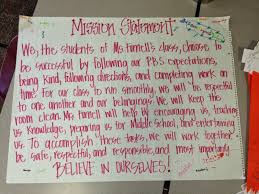 Mission Statement
We, the students of Ms. Funnell's class, choose to
be successful by following our P.B.S. expectations,
being kind, following directions, and completing work on
time. For our class to run smoothly, we will be respectful
to one another and our belongings. We will keep the
room clean. Ms. Funnell will help by encouraging us, teaching
us Knowledge, preparing us for Middle School, and
To accomplish these tasks, we will work together
be safe, respectful, and responsible, and most importantly
BELIEVE IN OURSELVES!